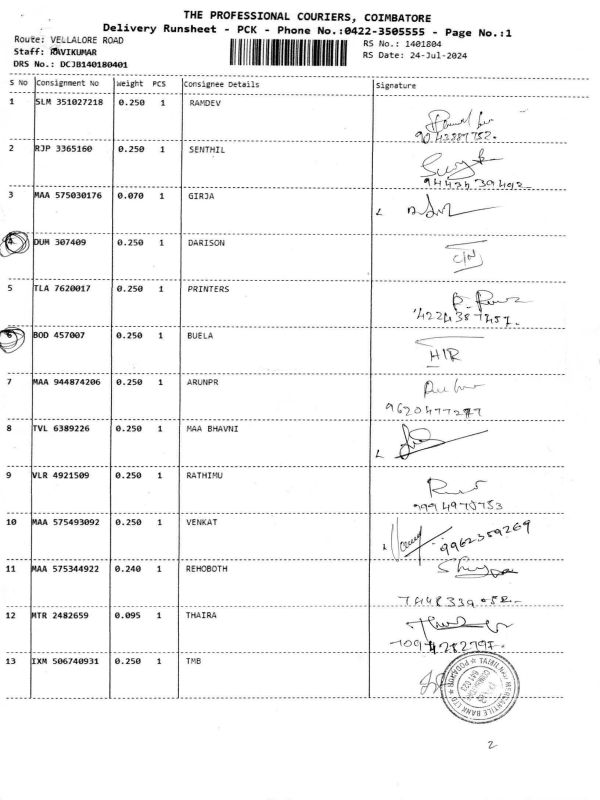 THE PROFESSIONAL COURIERS, COIMBATORE
Delivery Runsheet - PCK - Phone No.:0422-3505555 - Page No.:1
Route: VELLALORE ROAD
RS No.: 1401804
Staff: RAVIKUMAR
RS Date: 24-Jul-2024
DRS No.: DCJB140180401
S No Consignment No Weight PCS Consignee Details Signature
1 SLM 351027218 0.250 1 RAMDEV
9043587752.
2 RJP 3365160 0.250 1 SENTHIL
3 MAA 575030176 0.070 1 GIRJA
4 DUM 307409 0.250 1 DARISON
C/N
5 TLA 7620017 0.250 1 PRINTERS
6 BOD 457007 0.250 1 BUELA
HIR
7 MAA 944874206 0.250 1 ARUNPR
9620477277
8 TVL 6389226 0.250 1 MAA BHAVNI
9 VLR 4921509 0.250 1 RATHIMU
9994970753
10 MAA 575493092 0.250 1 VENKAT
9962359269
11 MAA 575344922 0.240 1 REHOBOTH
12 MTR 2482659 0.095 1 THAIRA
13 IXM 506740931 0.250 1 TMB
TAMILNAD MERCANTILE BANK LTD
2